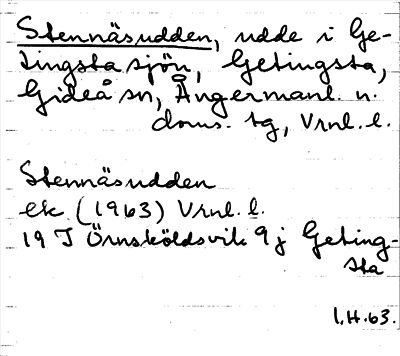 Stennäsudden, udde i Ge-
tingsta sjön, Getingsta,
Gideå sn, Ångermanl. n.
doms. tg, Vrnl. l.
Stennäsudden
ek (1963) Vrnl. l.
19 J Örnsköldsvik 9 j Geting-
sta
I.H.63.